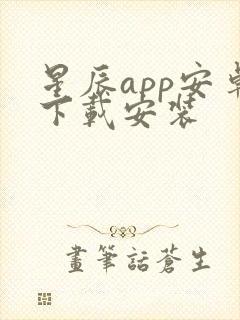 星辰app安卓
下载安装
畫筆話蒼生